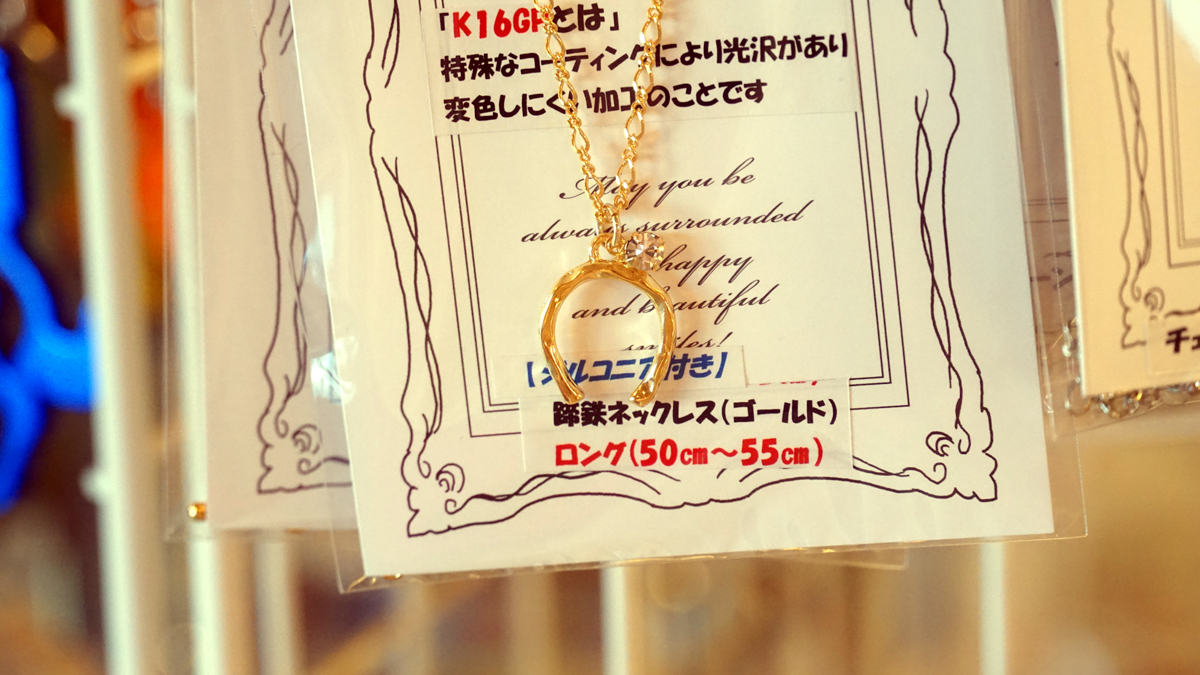 「K16GPとは」
特殊なコーティングにより光沢があり
変色しにくい加工のことです
May you be
always surrounded
happy
and beautiful
smiles!
【ジルコニア付き】
蹄鉄ネックレス(ゴールド)
ロング(50cm～55cm)
チェ